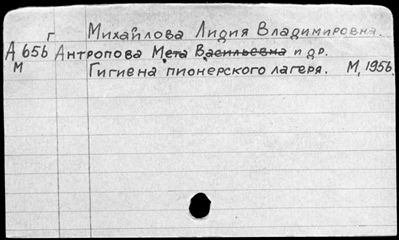 г Михайлова Лидия Владимировна.
А 656 Антропова Мета Васильевна и др.
М Гигиена пионерского лагеря. М, 1956.